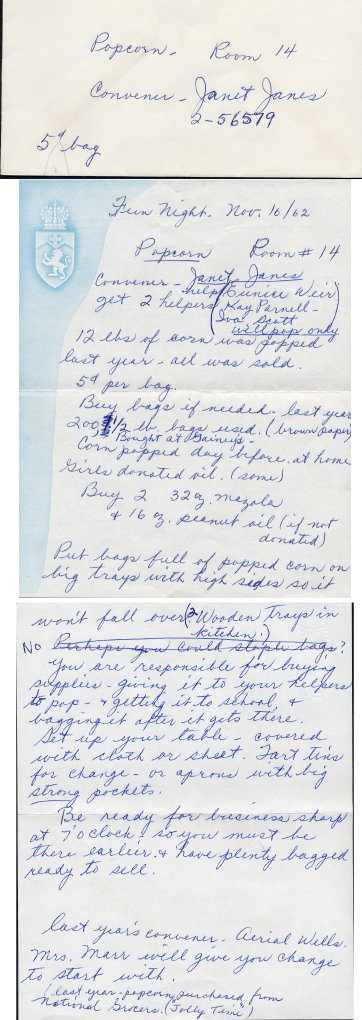 Popcorn - Room 14
Convener - Janet Janes
2-56579
5¢ bag
Fun Night. Nov. 16/62
Popcorn Room # 14
Convener - Janet Janes
get 2 helpers help (Eunice Weir)
(Kay Parnell -
Iva Scott
will pop only
12 lbs of corn was popped
last year - all was sold.
5¢ per bag.
Buy bags if needed. last year
200, 1/2 lb. bags used. (brown paper)
Bought at Gainey's -
Corn popped day before. at home
Girls donated oil. (some)
Buy 2 32 oz. mazola
& 16 oz. peanut oil (if not
donated)
Put bags full of popped corn on
big trays with high sides so it
won't fall over (2 Wooden Trays in
kitchen.)
NO Perhaps you could staple bags?
You are responsible for buying
supplies - giving it to your helpers
to pop - & getting it to school, &
bagging it after it gets there.
Set up your table - covered
with cloth or sheet. Tart tins
for change - or aprons with big
strong pockets.
Be ready for business sharp
at 7 o'clock - so you must be
there earlier & have plenty bagged
ready to sell.
last year's convener - Aerial Wells.
Mrs. Marr will give you change
to start with.
(last year - popcorn purchased from
National Grocers. (Jolly Time)